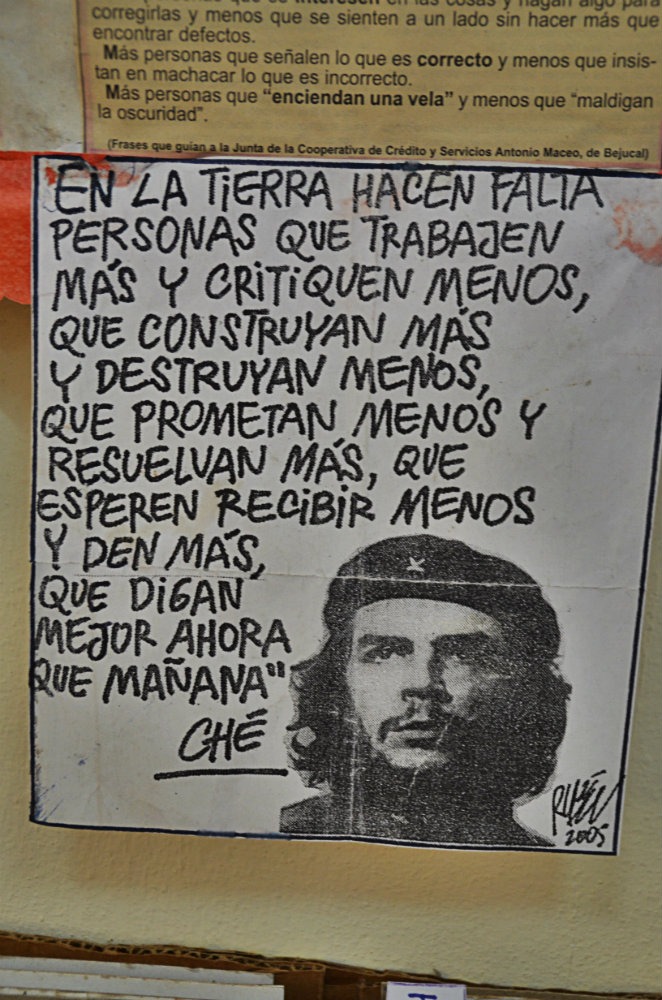 corregirlas y menos que se sienten a un lado sin hacer más que
encontrar defectos.
Más personas que señalen lo que es correcto y menos que insis-
tan en machacar lo que es incorrecto.
Más personas que "enciendan una vela" y menos que "maldigan
la oscuridad".
(Frases que guían a la Junta de la Cooperativa de Crédito y Servicios Antonio Maceo, de Bejucal)
EN LA TIERRA HACEN FALTA
PERSONAS QUE TRABAJEN
MÁS Y CRITIQUEN MENOS,
QUE CONSTRUYAN MÁS
Y DESTRUYAN MENOS,
QUE PROMETAN MENOS Y
RESUELVAN MÁS, QUE
ESPEREN RECIBIR MENOS
Y DEN MÁS,
QUE DIGAN
MEJOR AHORA
QUE MAÑANA"
CHÉ
2005